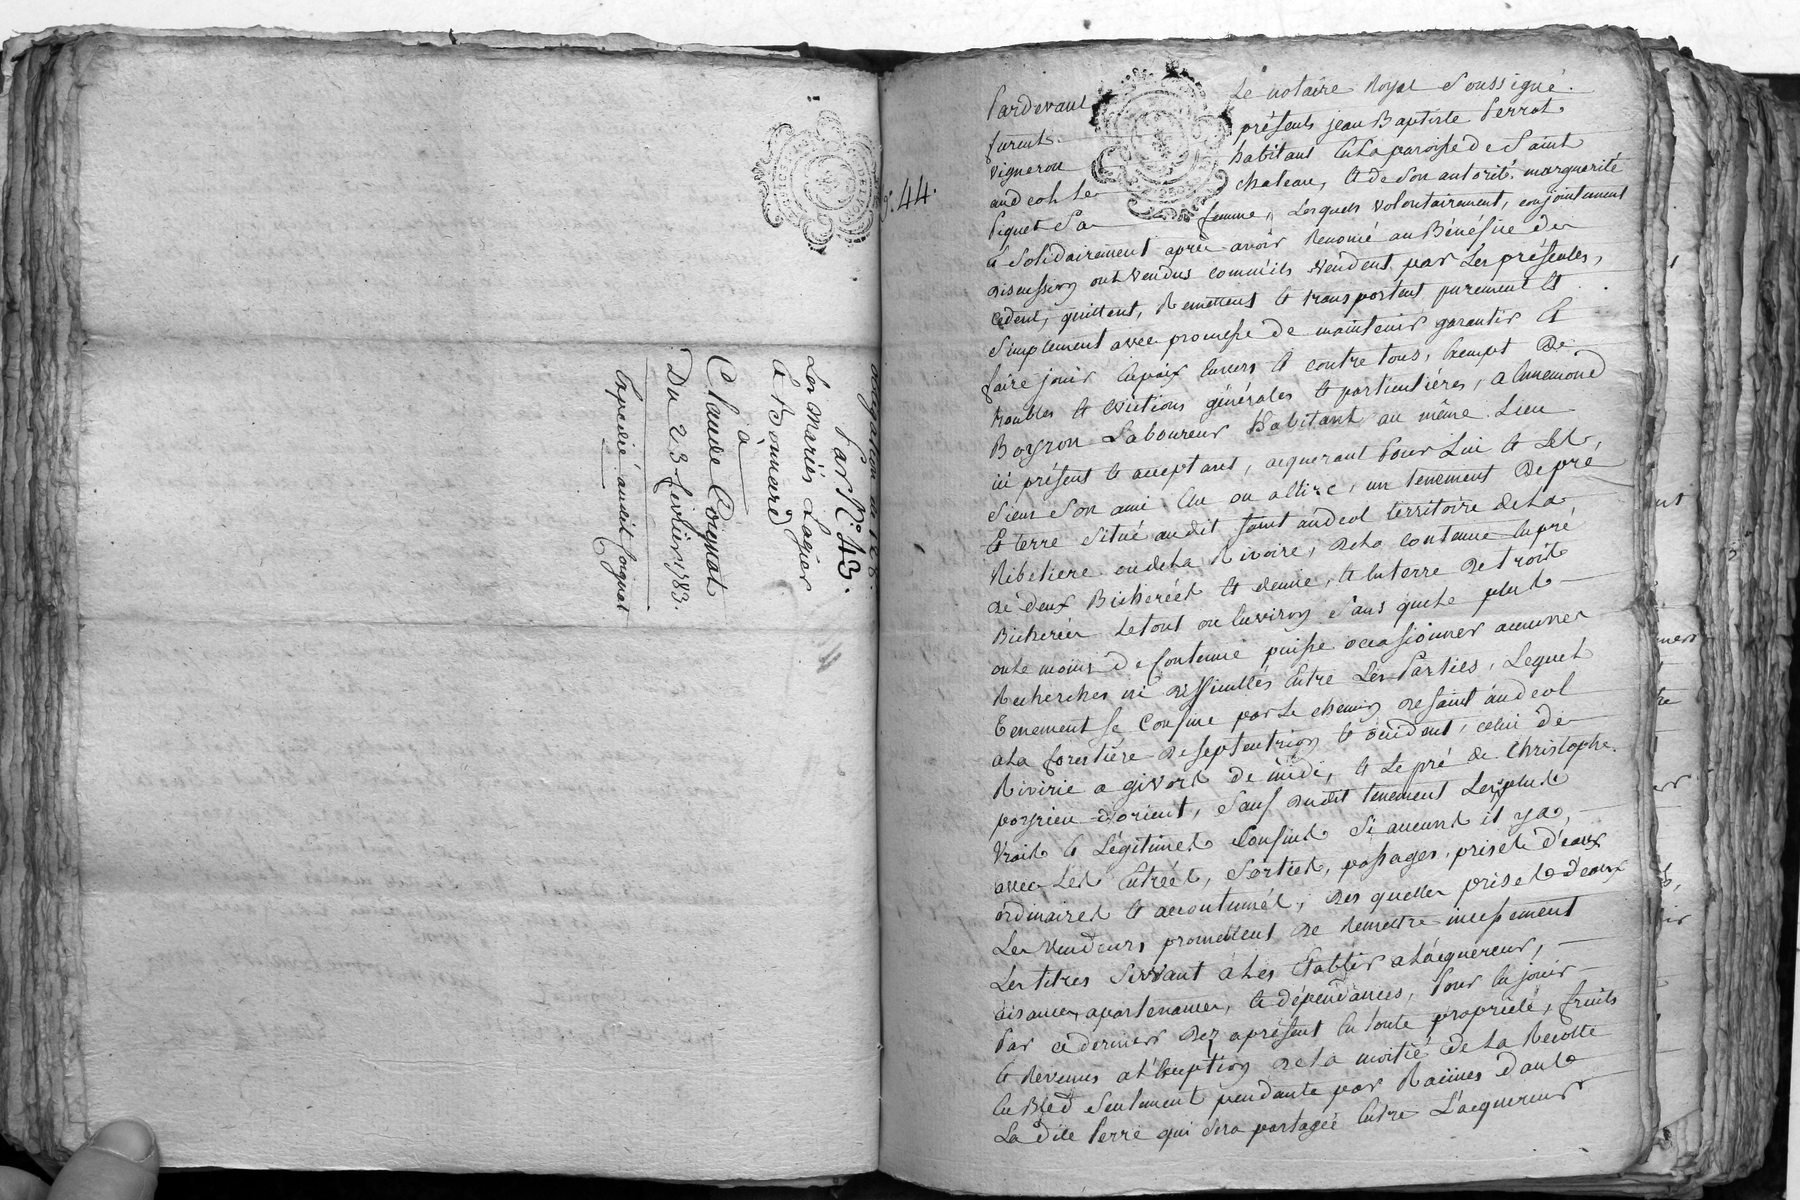 Obligation de 128.
Par N°. 43.
Les Mariés Lagier
& Bonnard
à
Claude Coignat
Du 23 fevrier 1783.
Expedié audit Coignat
N°. 44.
Pardevant Le notaire Royal Soussigné.
furent présents Jean Baptiste Perrot
vigneron habitant En la paroisse de Saint
andeol Le chateau, & de Son autorité, marguerite
Piquet Sa femme, Lesquels volontairement, conjointement
& Solidairement après avoir Renoncé au Bénéfice de
discussion ont vendus comm'ils vendent par Les présentes,
cedent, quittent, Remettent & transportent purement &
Simplement avec promesse de maintenir garantir &
faire jouir En paix Envers & contre tous, Exempt De
troubles & Evictions générales & particuliéres, a Ennemond
Boyron Laboureur Habitant au même Lieu
ici présent & acceptant, acquerant Pour Lui & Les
Siens Son ami Elu ou a Elire, un tenement De pré
& terre Situé audit Saint andeol territoire de La
Ribetiere ou de La Rivoire, de La contenue En pré
de deux Bicherées & demie, & En terre De trois
Bicherées Le tout ou Environ Sans que Le plus
ou Le moins De Contenue puisse occasionner aucunes
Recherches ni difficultés Entre Les Parties, Lequel
Tenement Se Confine par Le chemin de Saint andeol
a La forestière de Septentrion & occident, celui de
Rivirie a givors de midi, & Le pré de Christophe
poyrieu d'orient, Sauf dudit tenement Les plus
Vrais & Légitimes Confins Si aucuns il y a,
avec Les Entrées, Sorties, passages, prises d'eaux
ordinaires & accoutumés, Des quelles prises d'eaux
Les vendeurs promettent de Remettre incessament
Les titres Servant à Les Etablir a L'acquereur,
aisances, apartenances, & dépendances, Pour En jouir
Par ce dernier Dez aprésent En toute propriété, fruits
& Revenus a L'Exception de La moitié de La Recolte
En Bled Seulement pendante par Racines dans
La dite Terre qui Sera partagée Entre L'acquereur